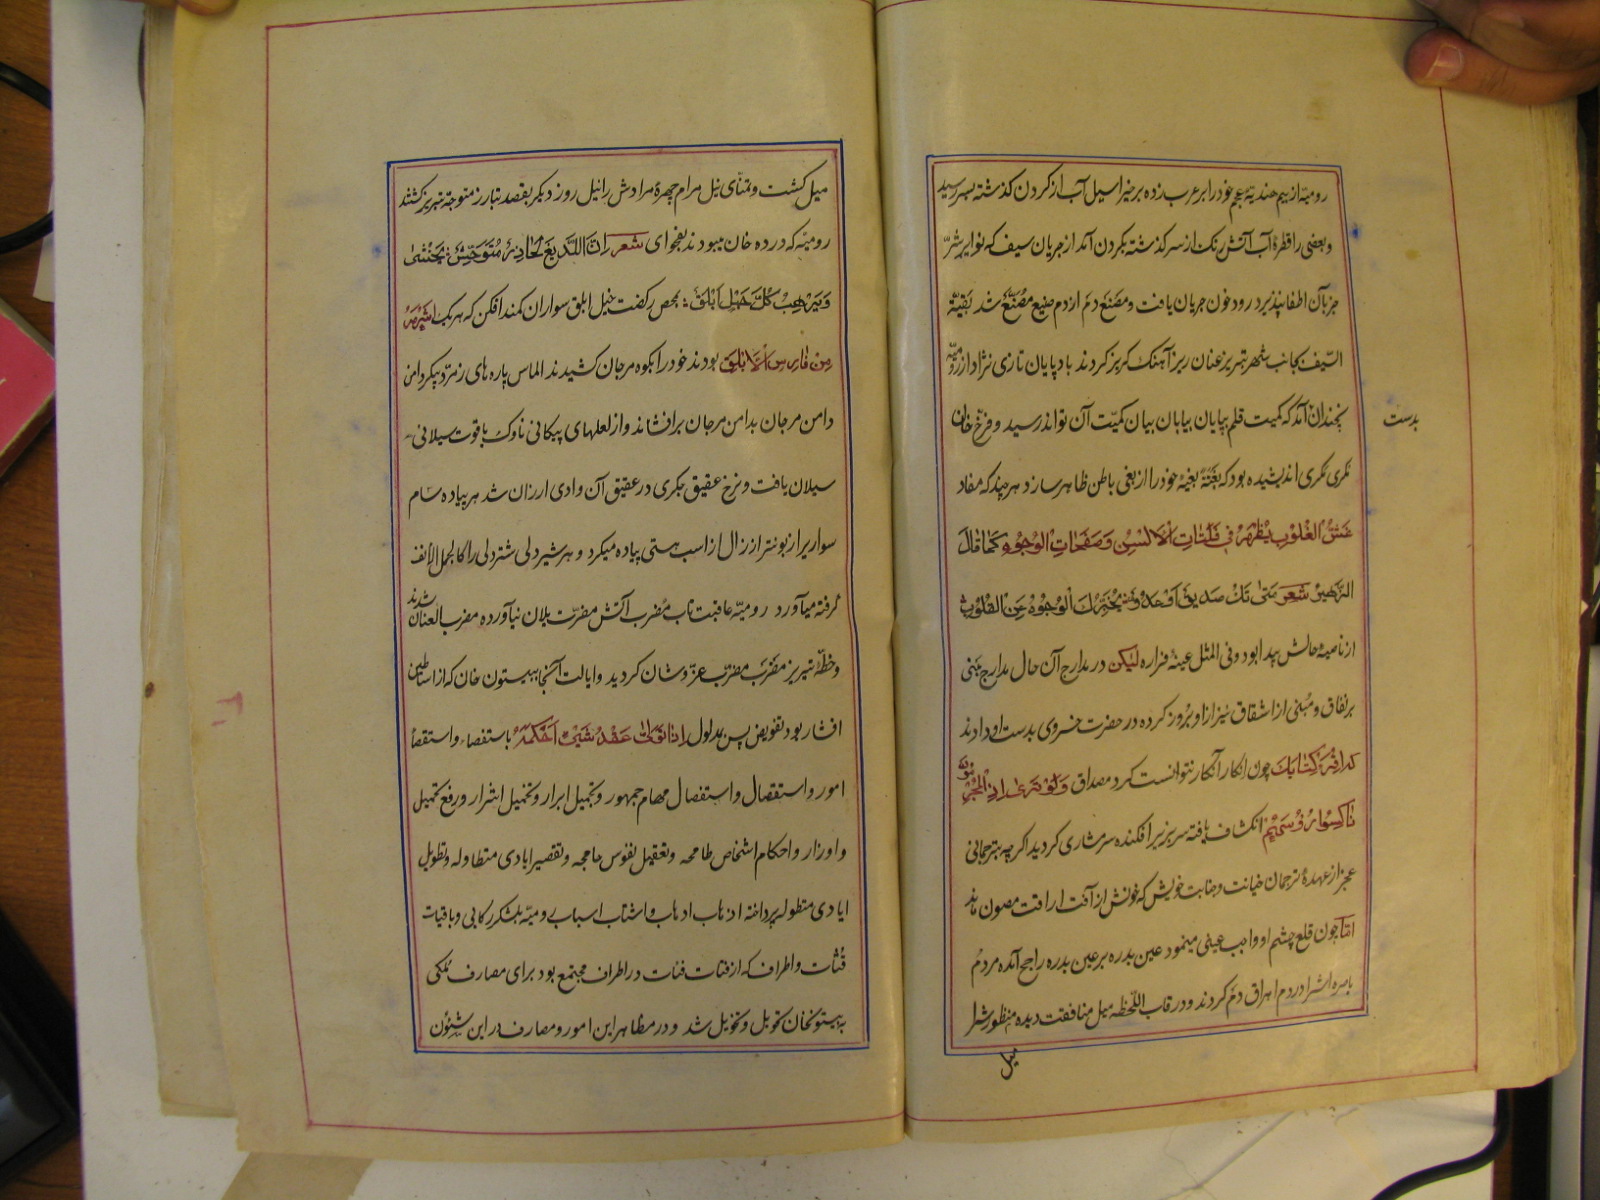 رومیّه از بیم هندیه عجم خود را بر عرب زده برخی را سیل آب از کردن کذشته بسر رسید
و بعضی را قطرهٔ آب آتش رنک از سر کذشته بکردن آمد از جریان سیف که نوایر شرّ
جز بآن اطفا پذیرد رود خون جریان یافت و مصنع دم از دم صنیع مصنّع شد بقیّة
السّیف بجانب شهر تبریز عنان ریز آهنک کریز کردند بادپایان تازی نژاد از رومیّه
بچندان آمد که کمیت قلم بپایان بیابان بیان کمیّت آن تواند رسید و فرّخ خان
بدست
نکری نکری اندیشیده بود که بغتةً بغیهٔ خود را از بغی باطن ظاهر سازد هرچند که مفاد
غشّ القلوب یظهر فی فلتات الالسن و صفحات الوجوه کما قال
الزّهیر شعر متی تک فی صدیق او عدو تخبرک الوجوه عن القلوب
از ناصیهٔ حالش پیدا بود و فی المثل عینهٔ فراره لیکن در مدارج آن حال مدارج مبنی
بر نفاق و مبنی از اشقاق نیز از او بروز کرده در حضرت خسروی بدست او دادند
که اقرء کتابک چون انکار آنکار نتوانست کرد مصداق و لو تری اذ المجرمون
ناکسوا رؤسهم انکشاف یافته سر بزیر افکنده سرمشاری کردید اکرچه بترجمانی
عجز از عهدهٔ ترجمان خیانت و جنایت خویش که خونش از آفت اراقت مصون ماند
امّا چون قلع چشم او واجب عینی مینمود عین بدره بر عین بدره راجح آمده مردم
باصره اشرا در دم اهراق دم کردند و در قاب اللّحظه میل منافقت دیده منظورش را
میل
میل کشت و تمنّای نیل مرام چهرهٔ مرادش را نیل روز دیکر بقصد تبارز متوجّه تبریز کشتند
رومیّه که درده خان میبودند بفحوای شعر انّ اللّدیغ لحاذر متوحّش یخشی
و یرهب کلّ حبل ابلق بمحض رکضت خیل ابلق سواران کمند افکن که هر یک اشهر
من فارس الابلق بودند خود را بکوه مرجان کشیدند الماس پاره های زمرّد پیکر دامن
دامن مرجان بدامن مرجان برافشاند و از لعلهای پیکانی ناوک یاقوت سیلانی
سیلان یافت و نرخ عقیق جکری در عقیق آن وادی ارزان شد هر پیاده سام
سواریرا زبونتر از زال از اسب هستی پیاده میکرد و هر شیردلی شتردلی را کالجمل الانف
کرفته میآورد رومیّه عاقبت تاب مضرب آتش مضرّت یلان نیآورده مضرب العنان شدند
و خطّهٔ تبریز مضرب مضرب عزّ و شان کردید و ایالت آنجا ببیستون خان که از اساطین
افشار بود تفویض پس بمدلول اذا تولّی عقد شیئ احکمه باستفصاء و استقصا
امور و استفصال و استفصال مهام جمهور و تجمیل ابرار و تخمیل اشرار و رفع تحمیل
و اوزار و احکام اشخاص طامحه و تعقیل نفوس جامحه و تقصیر ایادی متطاوله و تطویل
ایادی متطوله پرداخته اذهاب ادهاب و اشتاب اسباب رومیّه بلشکر رکابی و باقیات
قثاث و اطراف که از فتات فئات در اطراف مجتمع بود برای مصارف ملکی
ببیستونخان تحویل و تخویل شد و در مظاهر این امور و مصارف در این شئون